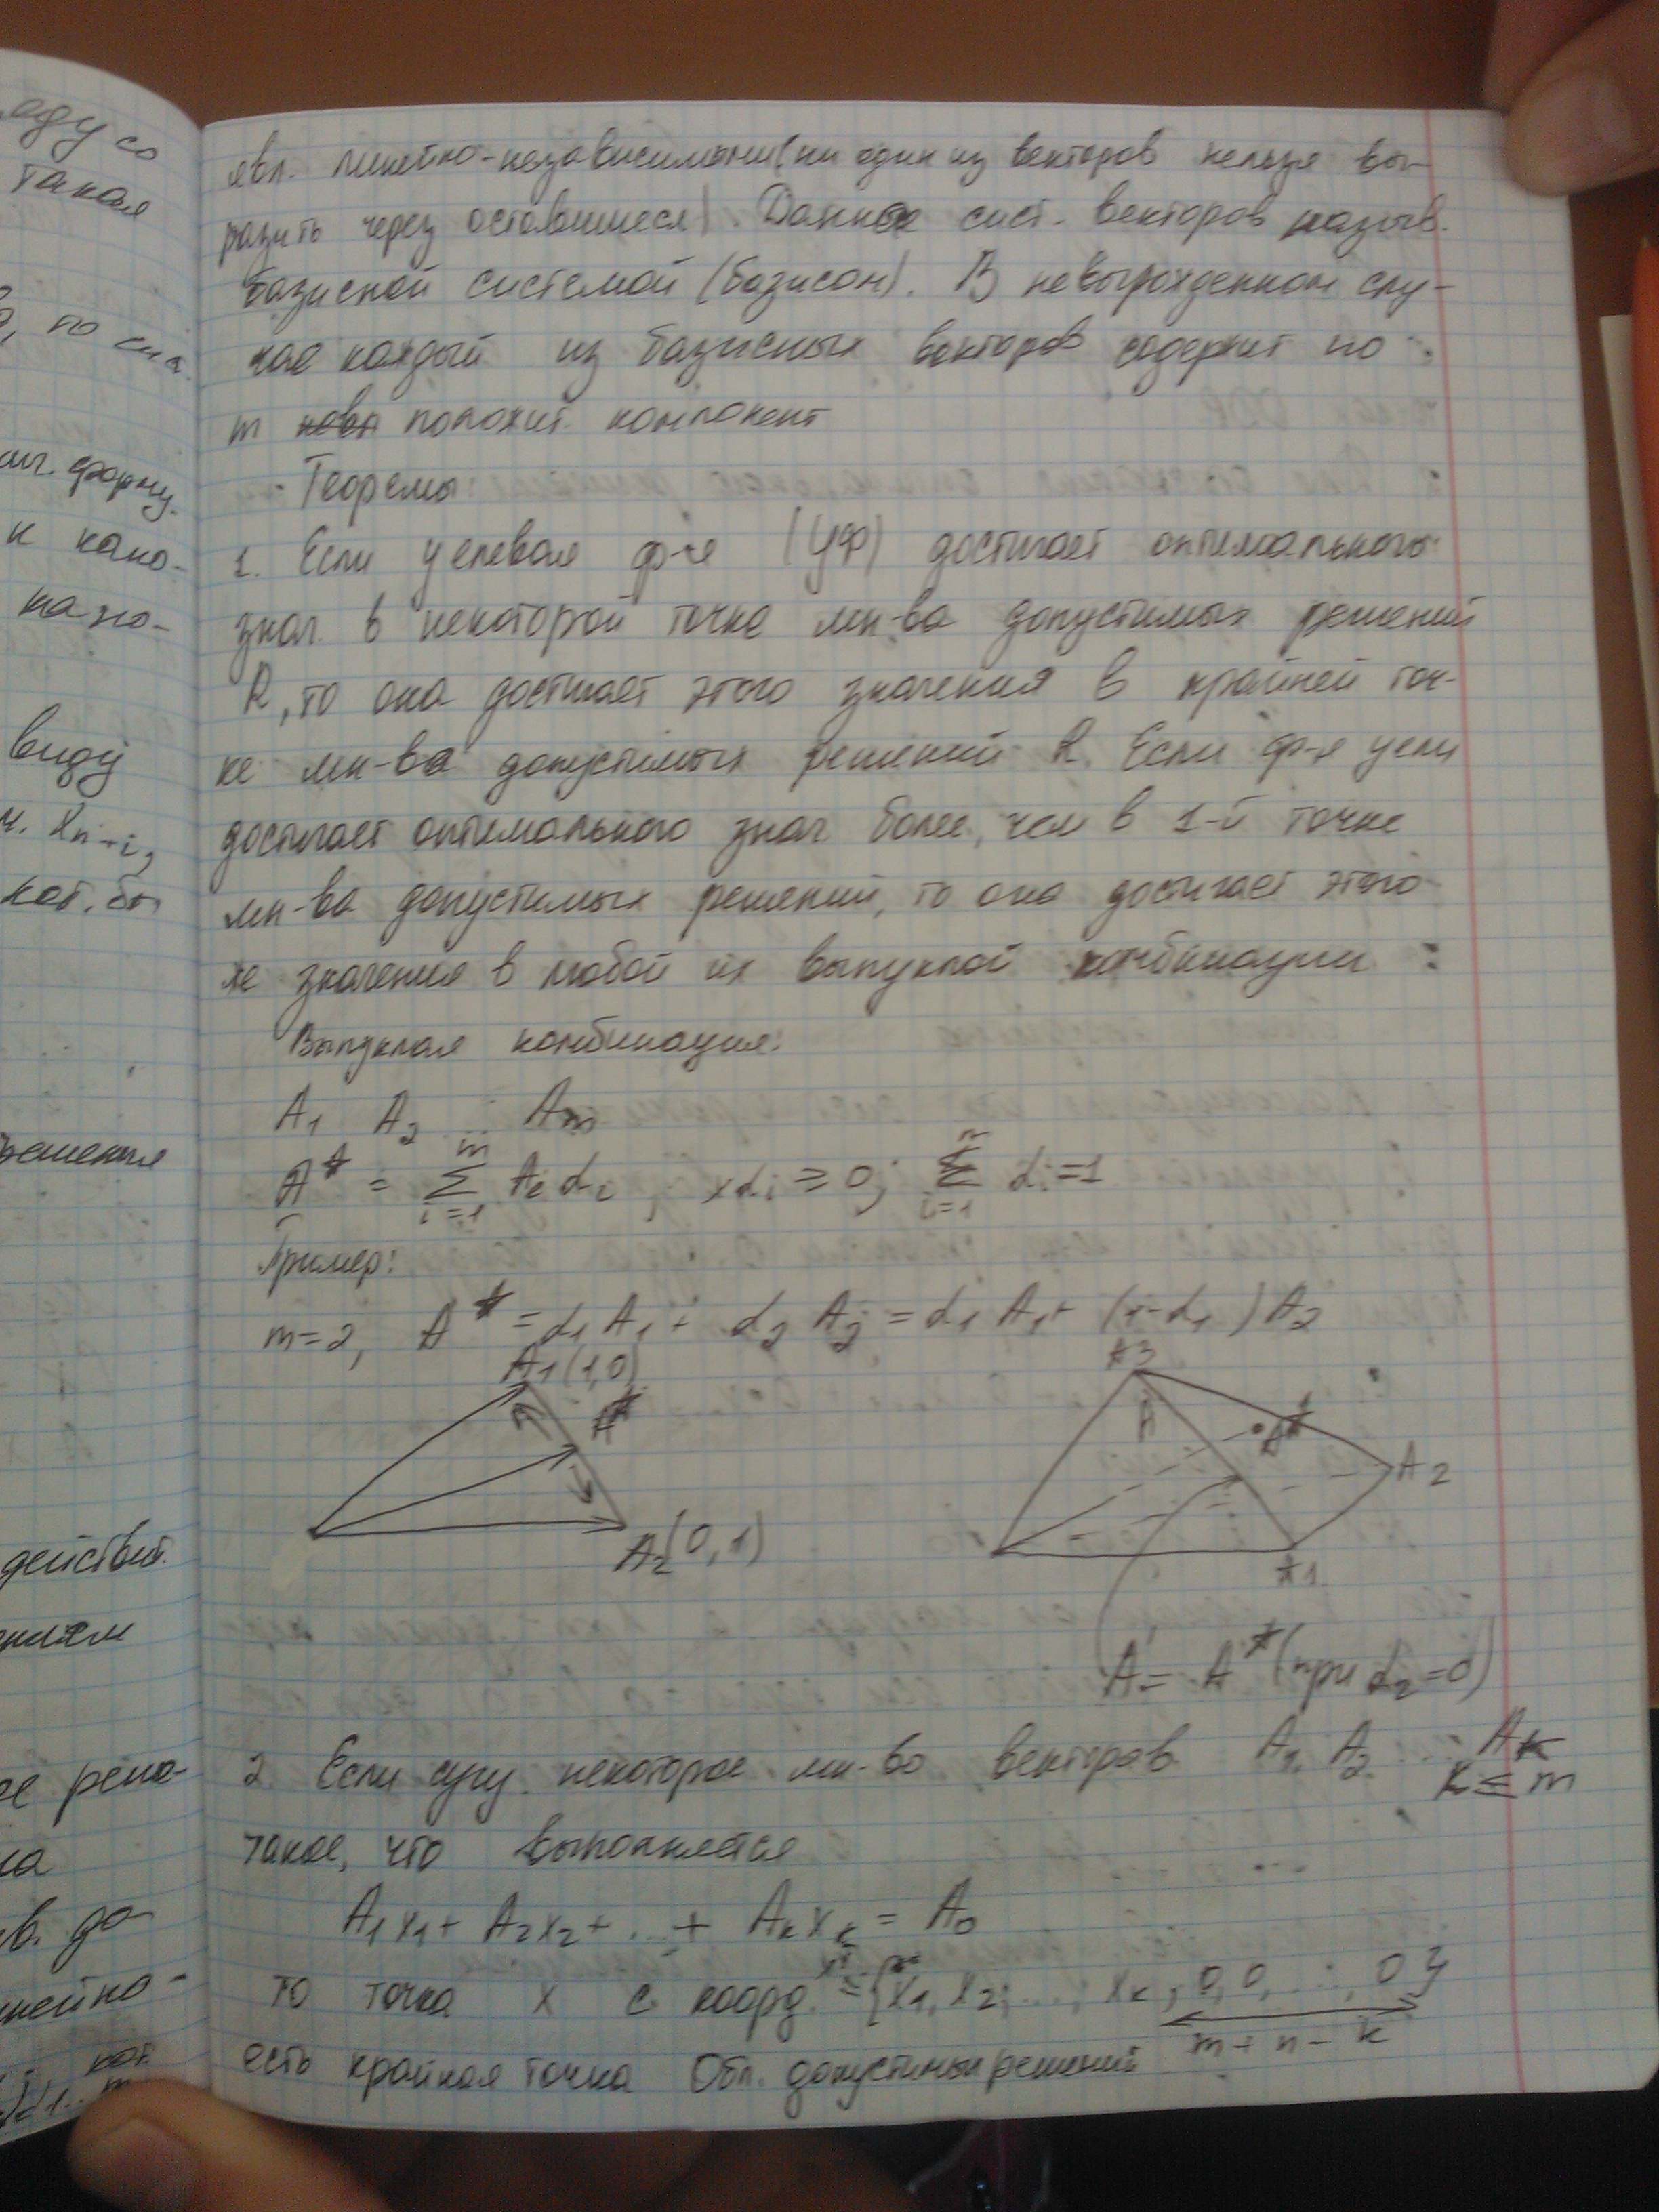 еду со
такая
то
форму.
к кано-
кано-
виду
xn+i,
кот. бы
решения
действит.
реше-
до-
линейно-
кот.
явл. линейно-независимыми (ни один из векторов нельзя вы-
разить через оставшиеся). Данная сист. векторов назыв.
базисной системой (базисом). В невырожденном слу-
чае каждый из базисных векторов содержит по
m положит. компонент
Теоремы:
1. Если целевая ф-я (ЦФ) достигает оптимального
знач. в некоторой точке мн-ва допустимых решений
R, то она достигает этого значения в крайней точ-
ке мн-ва допустимых решений R. Если ф-я цели
достигает оптимального знач. более, чем в 1-й точке
мн-ва допустимых решений, то она достигает этого
же значения в любой их выпуклой комбинации
Выпуклая комбинация:
A1 A2 ... Am
A* = Σ(i=1..m) Ai αi ; αi ≥ 0; Σ(i=1..m) αi = 1
Пример:
m=2, A* = α1 A1 + α2 A2 = α1 A1 + (1-α1) A2
A1(1,0)
A*
A2(0,1)
A3
A
A*
A2
A1
A = A* (при α2=0)
2. Если сущ. некоторое мн-во векторов A1, A2 ... Ak
k ≤ m
такое, что выполняется
A1x1 + A2x2 + ... + Akxk = A0
то точка X с коорд. = {x1, x2, ..., xk, 0, 0, ..., 0}
m + n - k
есть крайняя точка Обл. допустимых решений